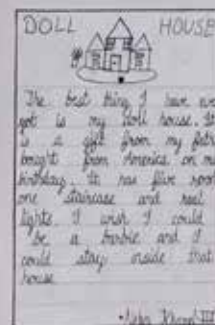 DOLL HOUSE
The best thing I have ever
got is my doll house. It
is a gift from my
bought from America on my
birthday. It has five
one staircase and real
lights. I wish I could
be a barbie and I
could stay inside that
house